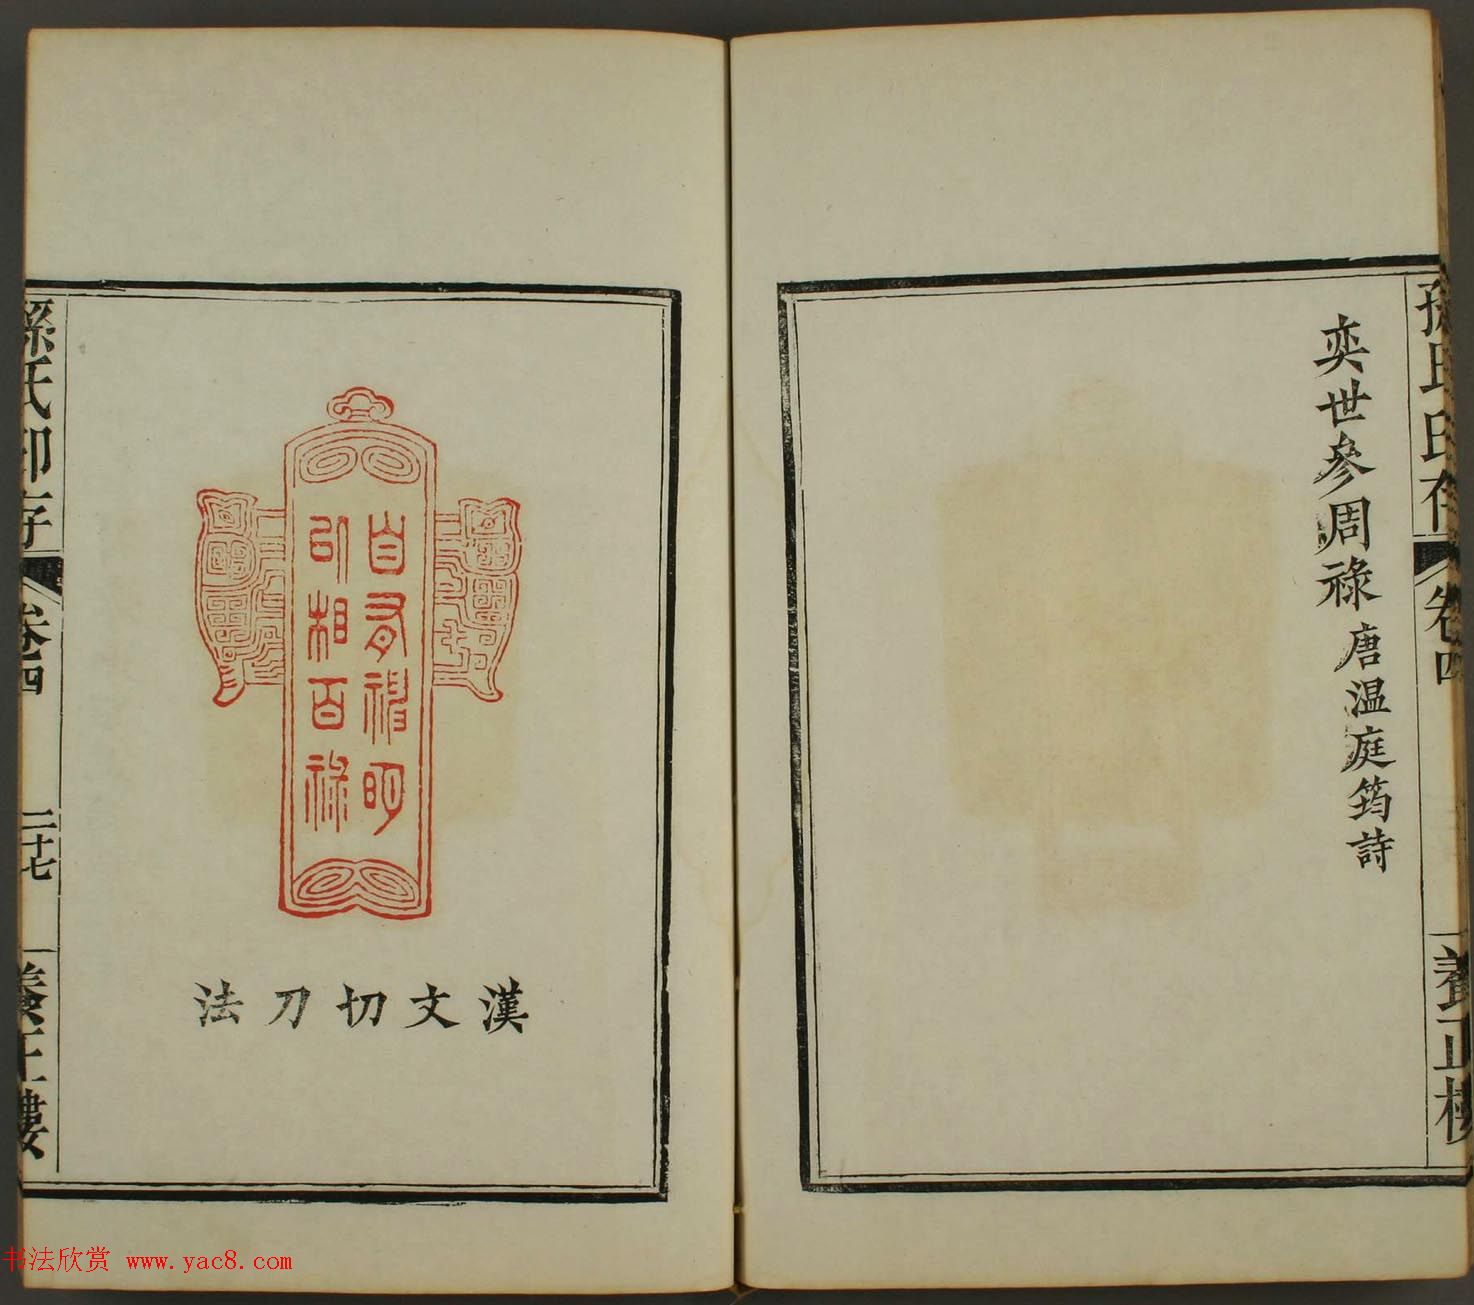 奕世參周祿 唐温庭筠詩
孫氏印存
卷四
養正樓
自有神明
以相百祿
漢文切刀法
孫氏印存
卷四
二十七
養正樓
书法欣赏 www.yac8.com